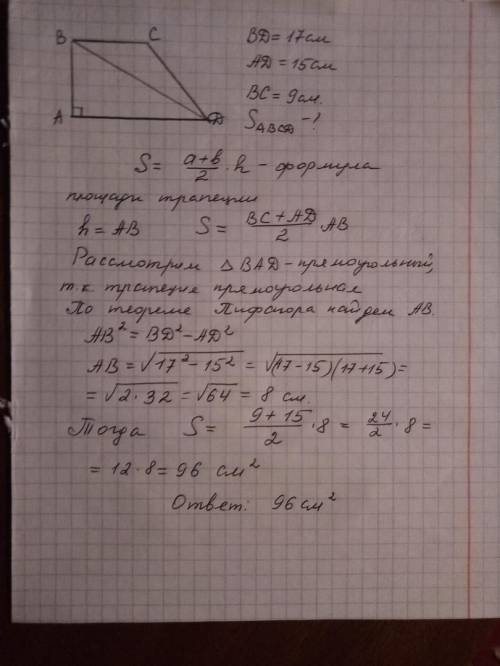 B C
A D
BD = 17 см
AD = 15 см
BC = 9 см.
S ABCD - ?
S = (a+b)/2 · h - формула
площади трапеции
h = AB S = (BC + AD)/2 · AB
Рассмотрим Δ BAD - прямоугольный,
т.к. трапеция прямоугольная
По теореме Пифагора найдем AB.
AB² = BD² - AD²
AB = √(17² - 15²) = √(17-15)(17+15) =
= √(2·32) = √64 = 8 см.
Тогда S = (9 + 15)/2 · 8 = 24/2 · 8 =
= 12 · 8 = 96 см²
Ответ: 96 см²